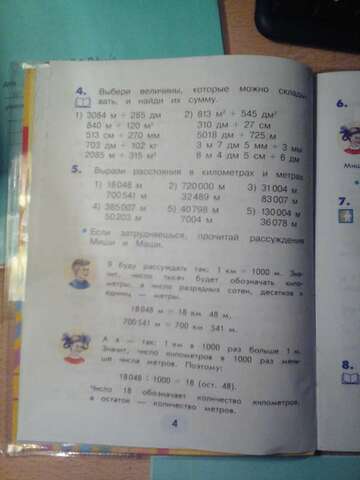 4. Выбери величины, которые можно склады-
вать, и найди их сумму.
1) 3084 м + 285 дм 2) 813 м² + 545 дм²
840 м + 120 м² 310 дм + 27 см
513 см + 270 мм 5018 дм + 725 м
703 дм + 102 кг 3 м 7 дм 5 мм + 3 мм
2085 м + 315 м² 8 м 4 дм 5 см + 6 дм
5. Вырази расстояния в километрах и метрах.
1) 18 048 м 2) 720 000 м 3) 31 004 м
700 541 м 32 489 м 83 007 м
4) 385 007 м 5) 40 798 м 5) 130 004 м
50 203 м 7004 м 36 078 м
• Если затрудняешься, прочитай рассуждения
Миши и Маши.
Я буду рассуждать так: 1 км = 1000 м. Зна-
чит, число тысяч будет обозначать кило-
метры, а число разрядных сотен, десятков и
единиц — метры.
18 048 м = 18 км 48 м,
700 541 м = 700 км 541 м.
А я — так: 1 км в 1000 раз больше 1 м.
Значит, число километров в 1000 раз мень-
ше числа метров. Поэтому:
18 048 : 1000 = 18 (ост. 48).
Число 18 обозначает количество километров,
а остаток — количество метров.
4
6.
7.
Миш
8.